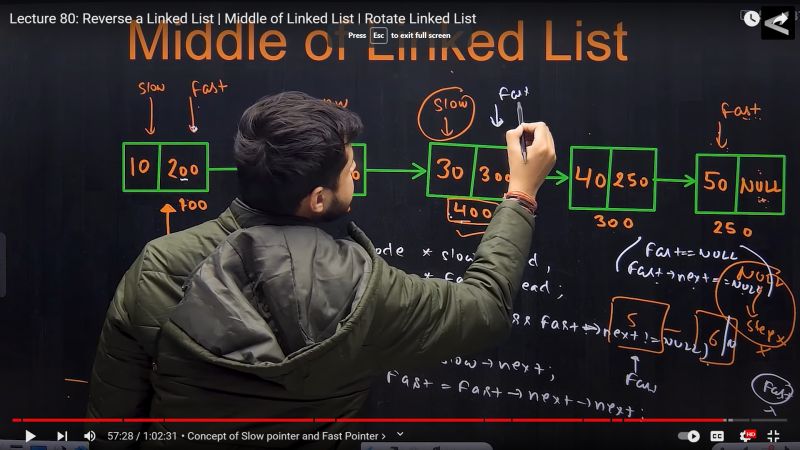 Lecture 80: Reverse a Linked List | Middle of Linked List | Rotate Linked List
Press Esc to exit full screen
Middle of Linked List
Slow Fast Slow Fast Fast
10 200 30 300 40 250 50 NULL
100 400 300 250
* slow
Fast==NULL
Fast→next==NULL
NULL
Step
&& Fast→next!=NULL)
5 6
slow→next;
Fast
Fast = Fast→next→next;
Fast
57:28 / 1:02:31 • Concept of Slow pointer and Fast Pointer >
CC HD